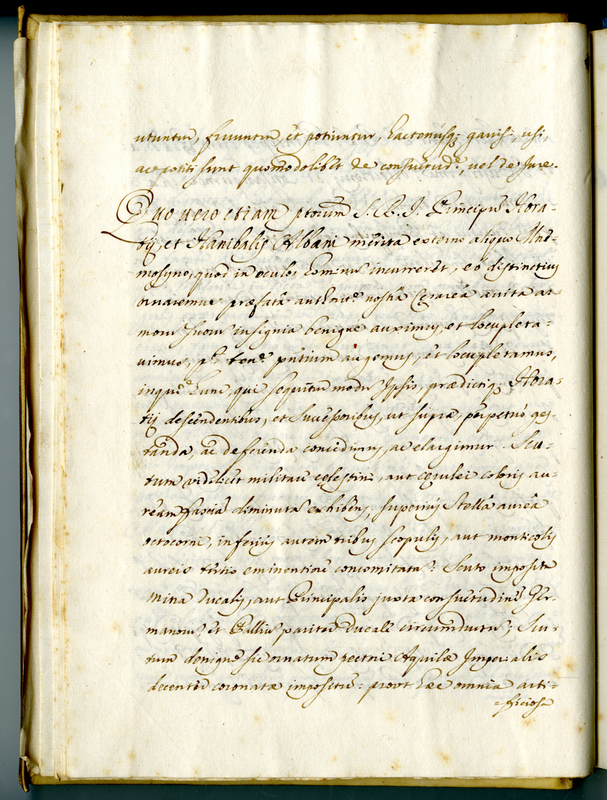 utuntur, fruuntur, et potiuntur, hactenusq; gavisi, usi,
ac potiti sunt quomodolibet de consuetud.e, vel de Jure.
Quo vero etiam ptorum S. R. I. Principũ Hora-
tij, et Hanibalis Albani merita externo aliquo Mne-
mosyno, quod in oculos hominũ incurreret, eo distinctius
ornaremus præfatâ authorit.e nostrâ Cæsareâ avita ar-
morum suorum insignia benigne auximus, et locupleta-
vimus, p. ten. pñtium augemus, et locupletamus,
inque eum, qui sequitur modũ Ipsis, prædictiq; Hora-
tij descendentibus, et Successoribus, ut supra, perpetuò ges-
tanda, ac deferenda concedimus, ac elargimur. Scu-
tum videlicet militare cœlestini, aut cærulei coloris au-
ream fasciã diminutã exhibens, superius Stellâ aureâ
octocorni, inferius autem tribus scopulis, aut monticolis
aureis tertio eminentiore concomitatã: Scuto impositâ
Mitra Ducalis, aut Principalis juxta consuetudinẽ Ger-
manorũ, et Pallio pariter Ducale circumdutũ; Scu-
tum denique sic ornatum pectori Aquilæ Imperialis
decenter coronatæ impositũ: prout hæc omnia arti-
=ficiosa